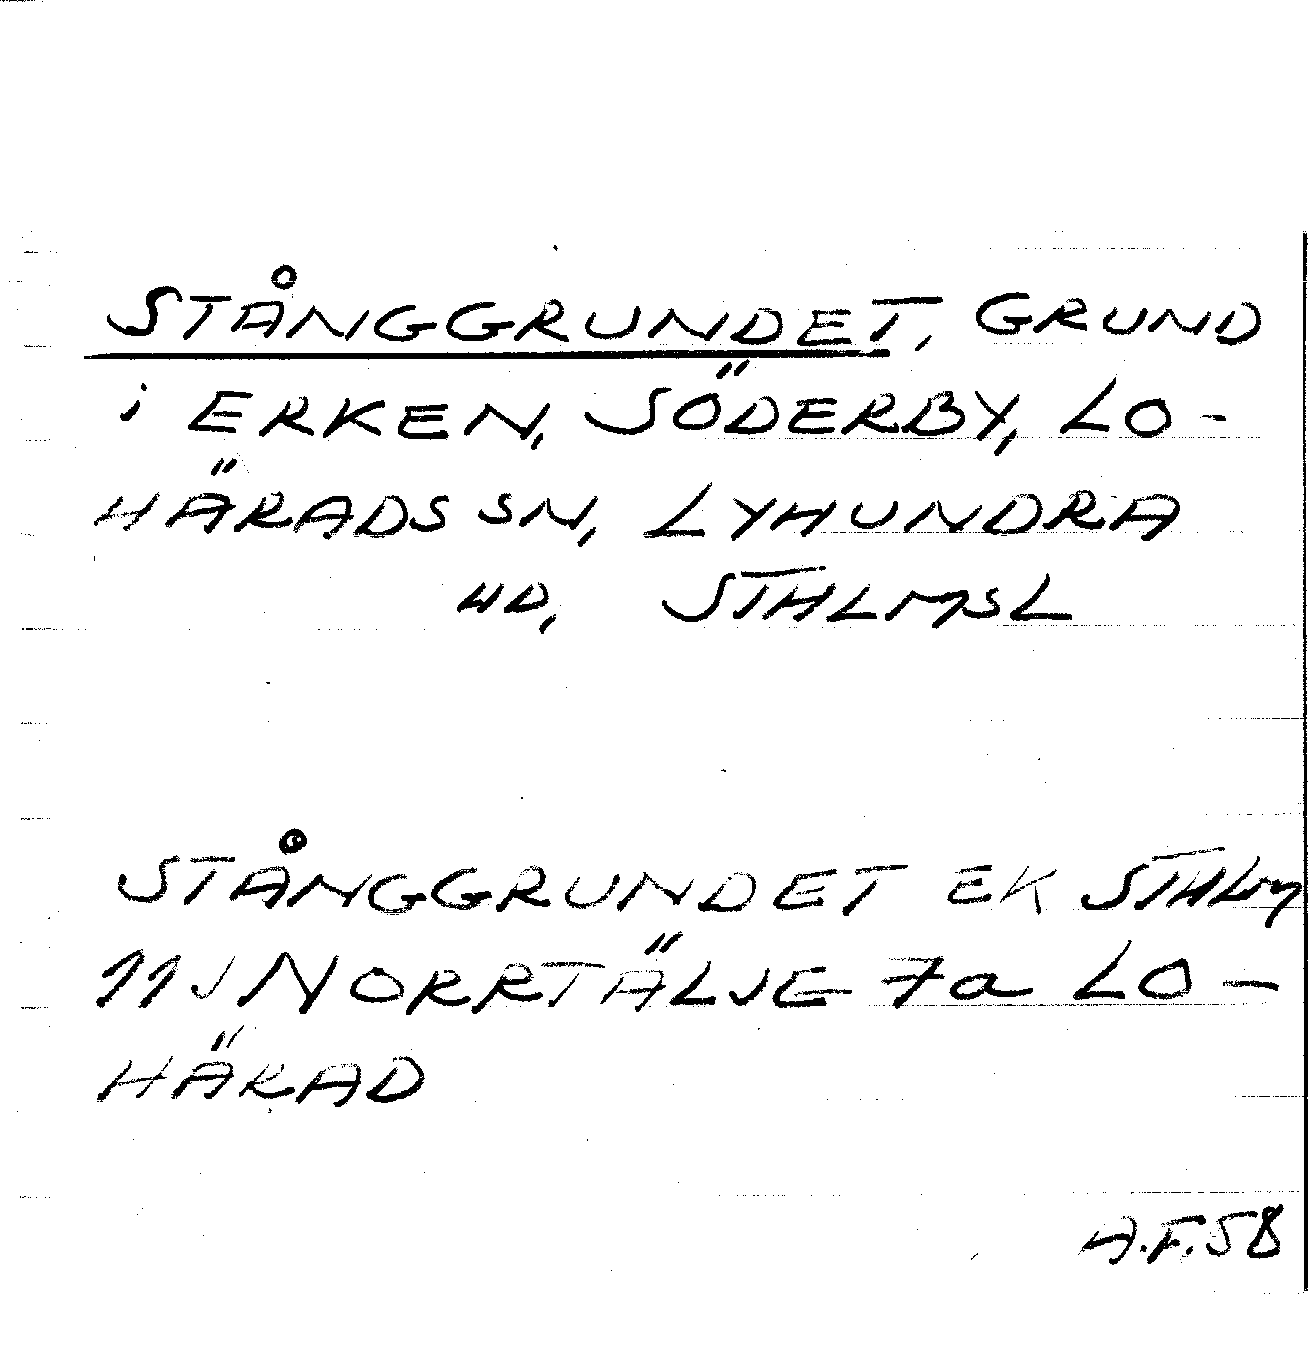 STÅNGGRUNDET, GRUND
i ERKEN, SÖDERBY, LO-
HÄRADS SN, LYHUNDRA
HD, STHLMSL
STÅNGGRUNDET EK STHLM
11J NORRTÄLJE 7a LO-
HÄRAD
A.F.58